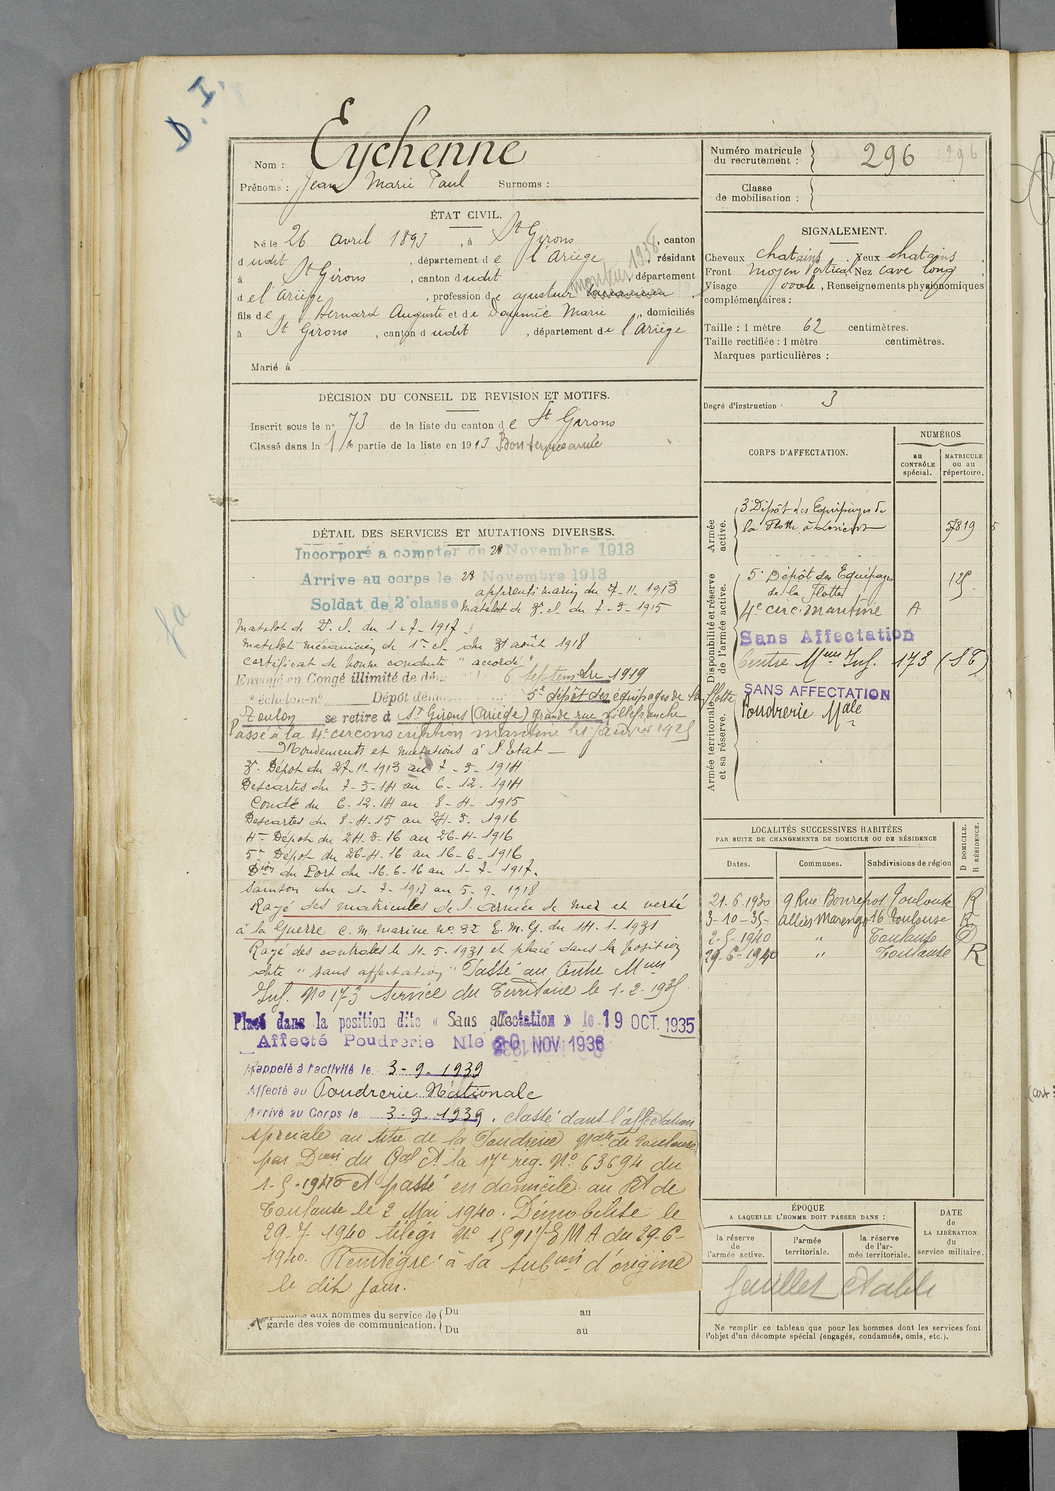 D. I.
Nom : Eychenne
Prénoms : Jean Marie Paul Surnoms :
Numéro matricule du recrutement : 296
Classe de mobilisation :
ÉTAT CIVIL.
Né le 26 avril 1893, à St Girons, canton
dudit, département de l'Ariège, résidant
à St Girons, canton dudit, département
del'ariège, profession de ajusteur monteur 1938
fils de Bernard Auguste et de Marie, domiciliés
à St Girons, canton dudit, département de l'Ariège
Marié à
SIGNALEMENT.
Cheveux chatains, Yeux chatains,
Front moyen vertical Nez cave long,
Visage ovale, Renseignements physionomiques
complémentaires :
Taille : 1 mètre 62 centimètres.
Taille rectifiée : 1 mètre centimètres.
Marques particulières :
Degré d'instruction : 3
DÉCISION DU CONSEIL DE REVISION ET MOTIFS.
Inscrit sous le n° 73 de la liste du canton de St Girons
Classé dans la 1re partie de la liste en 1913 Bon service armé
CORPS D'AFFECTATION.
NUMÉROS
au CONTRÔLE spécial.
MATRICULE ou au répertoire.
Armée active.
3e Dépôt des Equipages de
la Flotte à Lorient
Disponibilité et réserve de l'armée active.
5e Dépôt des Equipages
de la Flotte
4e circ. maritime A
Sans Affectation
Centre Mun Inf. 173 (ST)
Armée territoriale et sa réserve.
SANS AFFECTATION
Poudrerie Nale
DÉTAIL DES SERVICES ET MUTATIONS DIVERSES.
Incorporé a compter du 28 Novembre 1913
Arrive au corps le 28 Novembre 1913
Soldat de 2e classe
apprenti marin du 27-11-1913
matelot de 3e cl. du 7-3-1915
matelot de 2e cl. du 1-7-1917
matelot mécanicien de 1re cl. du 31 août 1918
certificat de bonne conduite "accordé"
Envoyé en Congé illimité de 6 septembre 1919
échelon n° Dépôt 5e dépôt des équipages de la flotte
Toulon se retire à St Girons (Ariège) grande rue Villefranche
Passé à la 4e circonscription maritime le 1er janvier 1925
Mouvements et mutations à l'Etat
3e Dépôt du 27-11-1913 au 7-3-1914
Descartes du 7-3-14 au 6-12-1914
Condé du 6-12-14 au 8-4-1915
Descartes du 8-4-15 au 24-3-1916
4e Dépôt du 24-3-16 au 26-4-1916
5e Dépôt du 26-4-16 au 16-6-1916
Don du Port du 16-6-16 au 1-7-1917.
Samson du 1-7-1917 au 5-9-1918
Rayé des matricules de l'armée de mer et versé
à la Guerre C. M. marine no 32 E.M.G. du 14.1.1931
Rayé des controles le 11-5-1931 et placé dans la position
dite "sans affectation" Passé au Centre Mun
Inf. No 173 Service du Territoire le 1-2-1935
Placé dans la position dite « Sans affectation » le 19 OCT. 1935
Affecté Poudrerie Nle 20 NOV 1936
Rappelé à l'activité le 3-9-1939
Affecté au Poudrerie Nationale
Arrivé au Corps le 3-9-1939. classé dans l'affectation
spéciale au titre de la Poudrerie Nale de Toulouse
par Don du Gal Ct la 17e rég. No 63694 du
1-5-1940 et passé en domicile au Rt de
Toulouse le 2 Mai 1940. Démobilisé le
29-7-1940 télég. No EMA du 29-6-
1940. Réintégré à sa subon d'origine
le dit jour.
aux hommes du service de garde des voies de communication.
Du au
Du au
LOCALITÉS SUCCESSIVES HABITÉES
PAR SUITE DE CHANGEMENTS DE DOMICILE OU DE RÉSIDENCE.
Dates. Communes. Subdivisions de région D DOMICILE. R RÉSIDENCE.
21.6.1930 9 Rue Bonrepos Toulouse R
3-10-35- Allées Marengo 16 Toulouse R
2-5-1940 " Toulouse D
29-6-1940 " Toulouse R
ÉPOQUE
A LAQUELLE L'HOMME DOIT PASSER DANS :
la réserve de l'armée active.
l'armée territoriale.
la réserve de l'armée territoriale.
DATE de LA LIBÉRATION du service militaire.
feuillet établi
Ne remplir ce tableau que pour les hommes dont les services font
l'objet d'un décompte spécial (engagés, condamnés, omis, etc.).